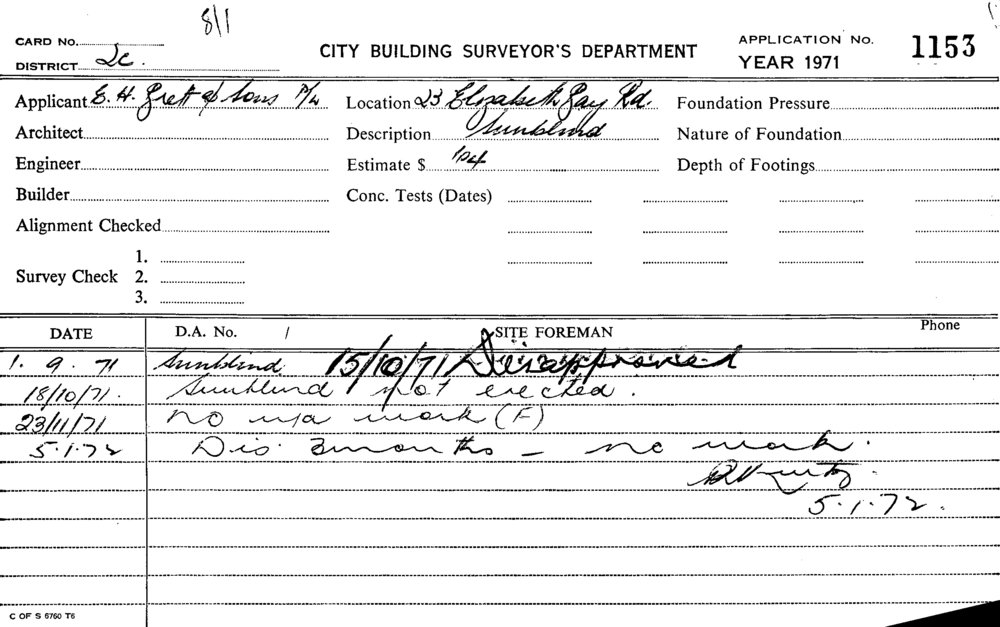 8/1
CARD No.
DISTRICT 2c.
CITY BUILDING SURVEYOR'S DEPARTMENT
APPLICATION No. 1153
YEAR 1971
Applicant E. H. & Sons P/L
Location 23 Elizabeth Bay Rd.
Foundation Pressure
Architect
Description Sunblind
Nature of Foundation
Engineer
Estimate $ 104
Depth of Footings
Builder
Conc. Tests (Dates)
Alignment Checked
Survey Check
1.
2.
3.
DATE D.A. No. / SITE FOREMAN Phone
1. 9. 71 Sunblind 15/10/71 Disapproved
18/10/71. Sunblind not erected.
23/11/71 No work (F)
5.1.72 Dis 3 months - no work.
5.1.72.
C OF S 6760 T6